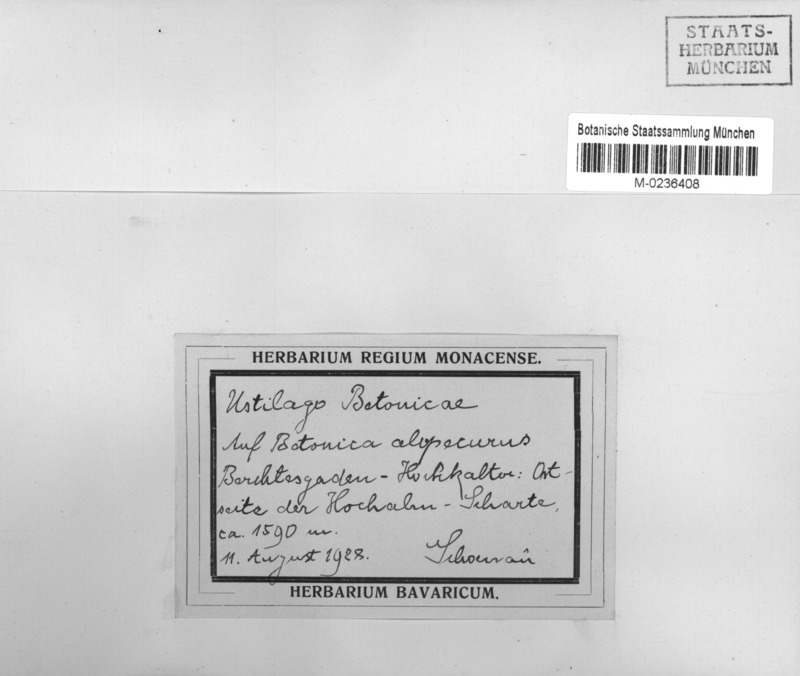 STAATS-
HERBARIUM
MÜNCHEN
Botanische Staatssammlung München
M-0236408
HERBARIUM REGIUM MONACENSE.
Ustilago Betonicae
Auf Betonica alopecurus
Berchtesgaden - Hochkalter: Ost-
seite der Hochalm - Scharte,
ca. 1590 m.
11. August 1928.
HERBARIUM BAVARICUM.